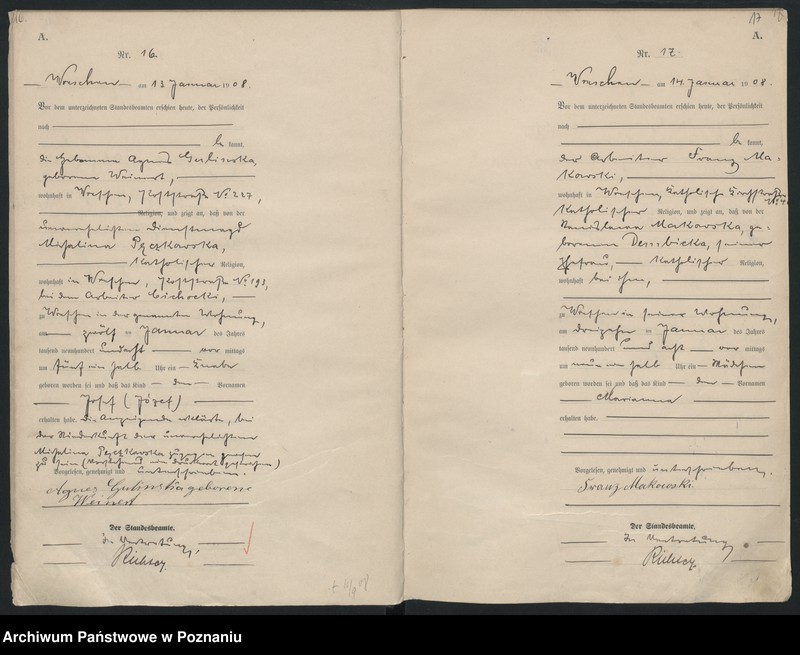 16.
A.
Nr. 16
Wreschen am 13 Januar 1908.
Vor dem unterzeichneten Standesbeamten erschien heute, der Persönlichkeit
nach
be kannt,
die Hebamme Agnes
geborene Weinert,
wohnhaft in Wreschen, № 227,
Religion, und zeigt an, daß von der
unverehelichten Dienstmagd
Michalina Pęczkowska,
katholischer Religion,
wohnhaft in Wreschen, № 193,
bei dem Arbeiter Cichocki,
zu Wreschen in der genannten Wohnung,
am zwölf ten Januar des Jahres
tausend neunhundert und acht vor mittags
um fünf ein halb Uhr ein Knabe
geboren worden sei und daß das Kind den Vornamen
Josef (Józef)
erhalten habe. Die Anzeigende erklärte, bei
der Niederkunft der unverehelichten
Michalina Pęczkowska zugegen gewesen
zu sein
Vorgelesen, genehmigt und unterschrieben.
Agnes geborene
Weinert
Der Standesbeamte.
In Vertretung,
17
A.
Nr. 17.
Wreschen am 14. Januar 1908.
Vor dem unterzeichneten Standesbeamten erschien heute, der Persönlichkeit
nach
be kannt,
der Arbeiter Franz Ma-
kowski,
wohnhaft in Wreschen, Katholische
katholischer Religion, und zeigt an, daß von der
Stanislawa Makowska, ge-
borenen Dembicka, seiner
Ehefrau, katholischer Religion,
wohnhaft bei ihm,
zu Wreschen in seiner Wohnung,
am dreizehn ten Januar des Jahres
tausend neunhundert und acht vor mittags
um neun ein halb Uhr ein Mädchen
geboren worden sei und daß das Kind den Vornamen
Marianna
erhalten habe.
Vorgelesen, genehmigt und unterschrieben.
Franz Makowski
Der Standesbeamte.
In Vertretung
Archiwum Państwowe w Poznaniu